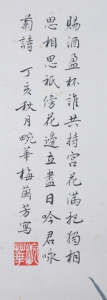 賜酒盈杯誰共持宮花滿把獨相
思相思祇傍花邊立盡日吟君詠
菊詩 丁亥秋月畹華梅蘭芳寫